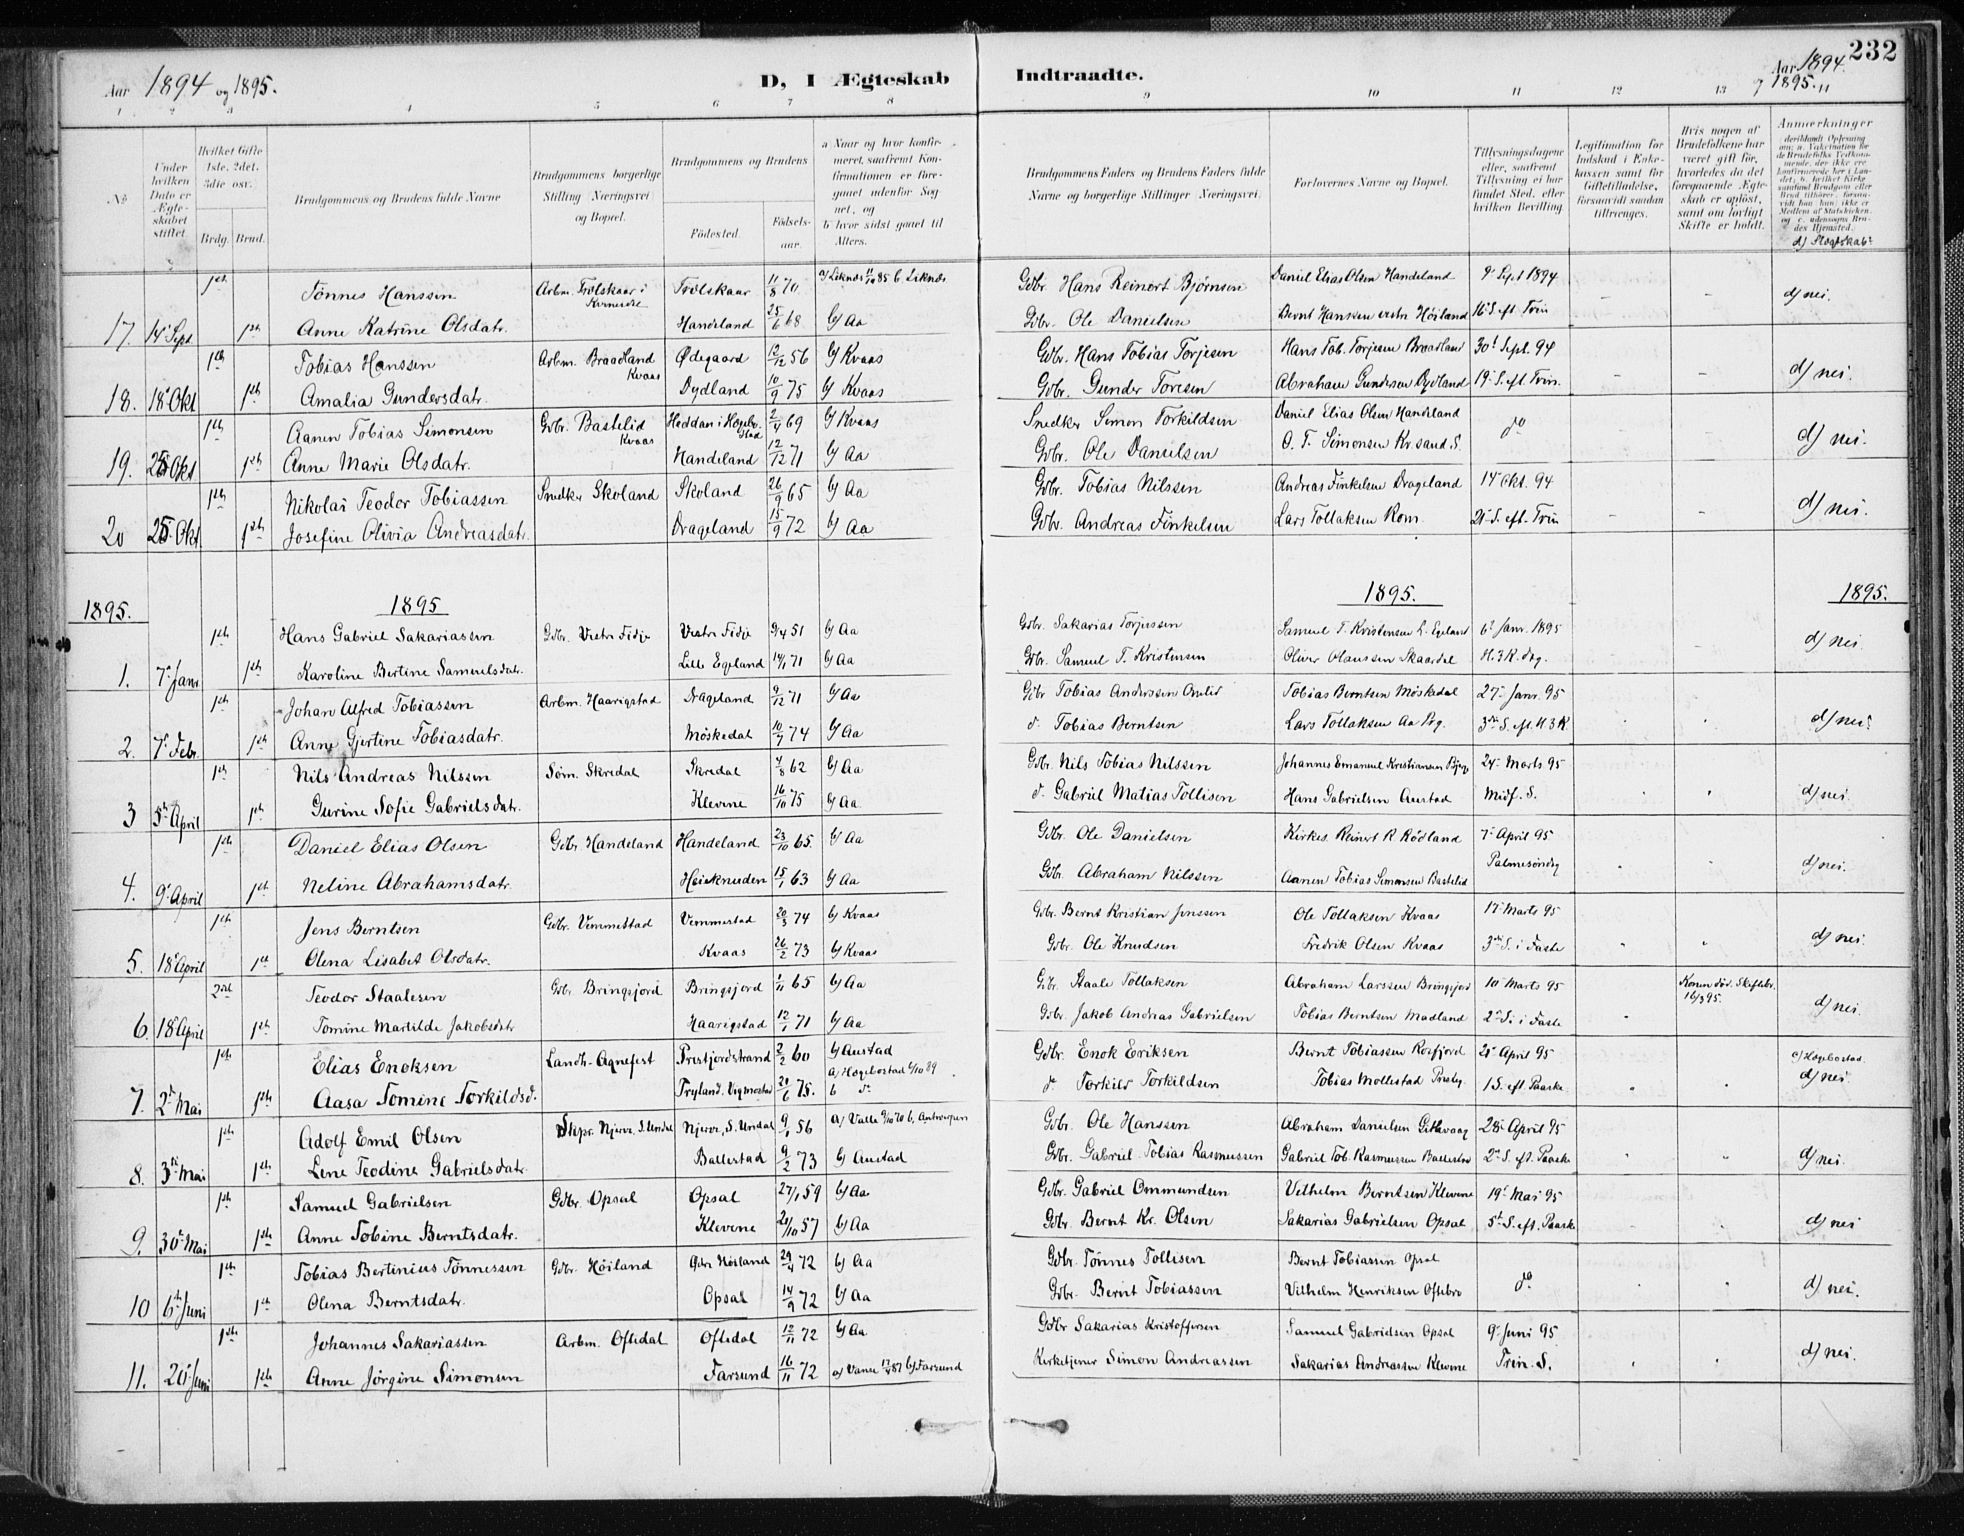 232
Aar 1894 og 1895.
D, I Ægteskab Indtraadte.
Aar 1894.
1895.
1 2 3 4 5 6 7 8 9 10 11 12 13 11
No
Under hvilken Dato er Ægteskabet stiftet.
Hvilket Gifte 1ste. 2det. 3die osv.
Brdg. Brud.
Brudgommens og Brudens fulde Navne
Brudgommens borgerlige Stilling Næringsvei og Bopæl.
Brudgommens og Brudens
Fødested. Fødselsaar.
a Naar og hvor konfirmeret, saafremt Konfirmationen er foregaaet udenfor Sognet, og
b hvor sidst gaaet til Alters.
Brudgommens Faders og Brudens Faders fulde Navne og borgerlige Stillinger Næringsvei.
Forlovernes Navne og Bopæl.
Tillysningsdagene eller, saafremt Tillysning ei har fundet Sted, efter hvilken Bevilling
Legitimation for Indskud i Enkekassen samt for Giftetilladelse, forsaavidt saadan tiltrænges.
Hvis nogen af Brudefolkene har været gift før, hvorledes da det foregaaende Ægteskab er opløst, samt om lovligt Skifte er holdt.
Anmærkninger
d) Slægtskab?
1ste Tønnes Hanssen Arbm. Trølskaar i Trølskaar 11/8 70 a) Liknes 11/10 85 b Liknes Gdbr. Hans Reinert Bjørnsen Daniel Elias Olsen Handeland 9de Sept 1894 - - d) nei.
17. 14de Sept 1ste Anne Katrine Olsdatr. Handeland 25/6 68 b) Aa Gdbr. Ole Danielsen Bernt Hanssen vestre Høiland 16de S. eft. Trin
1ste Tobias Hanssen Arbm. Braadland Kvaas Ødegaard 12/12 56 b) Kvaas Gdbr. Hans Tobias Torjesen Hans Tob. Torjesen Braadland 30te Sept. 94 - - d) nei.
18. 18de Okt 1ste Amalia Gundersdatr. Dydland 10/9 75 b) Kvaas Gdbr. Gunder Toresen Abraham Gundersen Dydland 19de S. eft. Trin.
1ste Aanen Tobias Simonsen Gdbr. Bastelid Kvaas Haddan i Hægebostad 2/4 69 b) Kvaas Snedker Simon Torkildsen Daniel Elias Olsen Handeland do - - d) nei.
19. 25 Okt 1ste Anne Marie Olsdatr. Handeland 12/12 71 b) Aa Gdbr. Ole Danielsen O. T. Simonsen Kr.sand S.
1ste Nikolai Teodor Tobiassen Snedker Skoland Skoland 26/9 65 b) Aa Gdbr. Tobias Nilssen Andreas Finkelsen Drageland 14de Okt. 94 d) nei.
20 25 Okt 1ste Josefine Olivia Andreasdatr. Drageland 15/9 72 b) Aa Gdbr. Andreas Finkelsen Lars Tollaksen Rom 21de S. eft. Trin
1895. 1895 1895. 1895.
1ste Hans Gabriel Sakariassen Gdbr. Vestre Fidje Vestre Fidje 9/4 51 b) Aa Gdbr. Sakarias Torjussen Samuel T. Kristensen L. Egeland 6te Janr. 1895 d) nei.
1. 7de Janr 1ste Karoline Bertine Samuelsdatr. Lille Egeland 14/1 71 b) Aa Gdbr. Samuel T. Kristensen Oliver Olaussen Skaardal H. 3 K. Dag.
1ste Johan Alfred Tobiassen Arbm. Haarigstad Drageland 9/12 71 b) Aa Gdbr Tobias Anderssen Tobias Berntsen Møskedal 27de Janr. 95 d) nei.
2. 7de Febr. 1ste Anne Gjertine Tobiasdatr. Møskedal 10/7 74 b) Aa do Tobias Berntsen Lars Tollaksen Aa Prg. 3die S. eft. H 3 K.
1ste Nils Andreas Nilssen Søm. Skredal Skredal 4/8 62 b) Aa Gdbr. Nils Tobias Nilssen Johannes Emanuel Kristiansen 24de Marts 95 d) nei.
3 5te April 1ste Gurine Sofie Gabrielsdatr. Klevene 16/10 75 b) Aa do Gabriel Matias Tollisen Hans Gabrielsen Austad Midf. S.
1ste Daniel Elias Olsen Gdbr. Handeland Handeland 23/10 65. b) Aa Gdbr. Ole Danielsen Kirkes. Reinert R. Rødland 7de April 95 d) nei.
4. 9de April 1ste Neline Abrahamsdatr. Heieknuden 15/1 63 b) Aa Gdbr. Abraham Nilssen Aanen Tobias Simonsen Bastelid Palmesøndag
1ste Jens Berntsen Gdbr. Vemmestad Vemmestad 20/3 74 b) Kvaas Gdbr. Bernt Kristian Jenssen Ole Tollaksen Kvaas 17de Marts 95 d) nei.
5. 18de April 1ste Olena Lisabet Olsdatr. Kvaas 26/2 73 b) Kvaas Gdbr. Ole Knudsen Fredrik Olsen Kvaas 3die S. i Faste
2det Teodor Staalesen Gdbr Bringsjord Bringsjord 1/11 65 b) Aa Gdbr. Staale Tollaksen Abraham Larssen Bringsjord 10de Marts 95 Konen død. Skiftebr. 16/3 95. d) nei.
6. 18de April 1ste Tomine Martilde Jakobsdatr Haarigstad 12/1 71 b) Aa Gdbr. Jakob Andreas Gabrielsen Tobias Berntsen Madland 2den S. i Faste
1ste Elias Enoksen Landh. Agnefest Prestjordstrand 2/2 60 b) Austad Gdbr. Enok Eriksen Bernt Tobiassen Rosfjord 21de April 95 c) Hægebostad. d) nei.
7. 2den Mai 1ste Aasa Tomine Torkildsd. Tryland, Vigmostad 20/6 75. a) Hægebostad 6/10 89 b do do Torkild Torkildsen Tobias Mollestad Prestg. 1 S. eft. Paaske
1ste Adolf Emil Olsen Skpr. Njerve, S. Undal Njerve, S. Undal 9/1 56 a) Valle 9/10 70 b, Antwerpen Gdbr. Ole Hanssen Abraham Danielsen Gitlevaag 28de April 95 d) nei
8. 3die Mai 1ste Lene Teodine Gabrielsdatr. Ballestad 9/2 73 b) Austad Gdbr. Gabriel Tobias Rasmussen Gabriel Tob. Rasmussen Ballestad 2den S. eft. Paaske
1ste Samuel Gabrielsen Gdbr. Opsal Opsal 27/1 59 b) Aa Gdbr. Gabriel Ommundsen Vilhelm Berntsen Klevene 19de Mai 95 d) nei
9. 30te Mai 1ste Anne Tobine Berntsdatr. Klevene 20/10 57 b) Aa Gdbr. Bernt Kr. Olsen Sakarias Gabrielsen Opsal 5te S. eft. Paaske
1ste Tobias Bertinius Tønnessen Gdbr. Høiland Høiland 29/4 72 b) Aa Gdbr. Tønnes Tollisen Bernt Tobiassen Opsal do d) nei.
10 6te Juni 1ste Olena Berntsdatr. Opsal 14/9 72 b) Aa Gdbr. Bernt Tobiassen Vilhelm Henriksen Oftebro
1ste Johannes Sakariassen Arbm. Oftedal Oftedal 12/11 72 b) Aa. Gdbr Sakarias Kristoffersen Samuel Gabrielsen Opsal 9de Juni 95 d) nei.
11. 20de Juni 1ste Anne Jørgine Simonsen Farsund 16/11 72 a) Vanse 17/4 87 b) Farsund Kirketjener Simon Andreassen Sakarias Andreassen Klevene Trin. S.